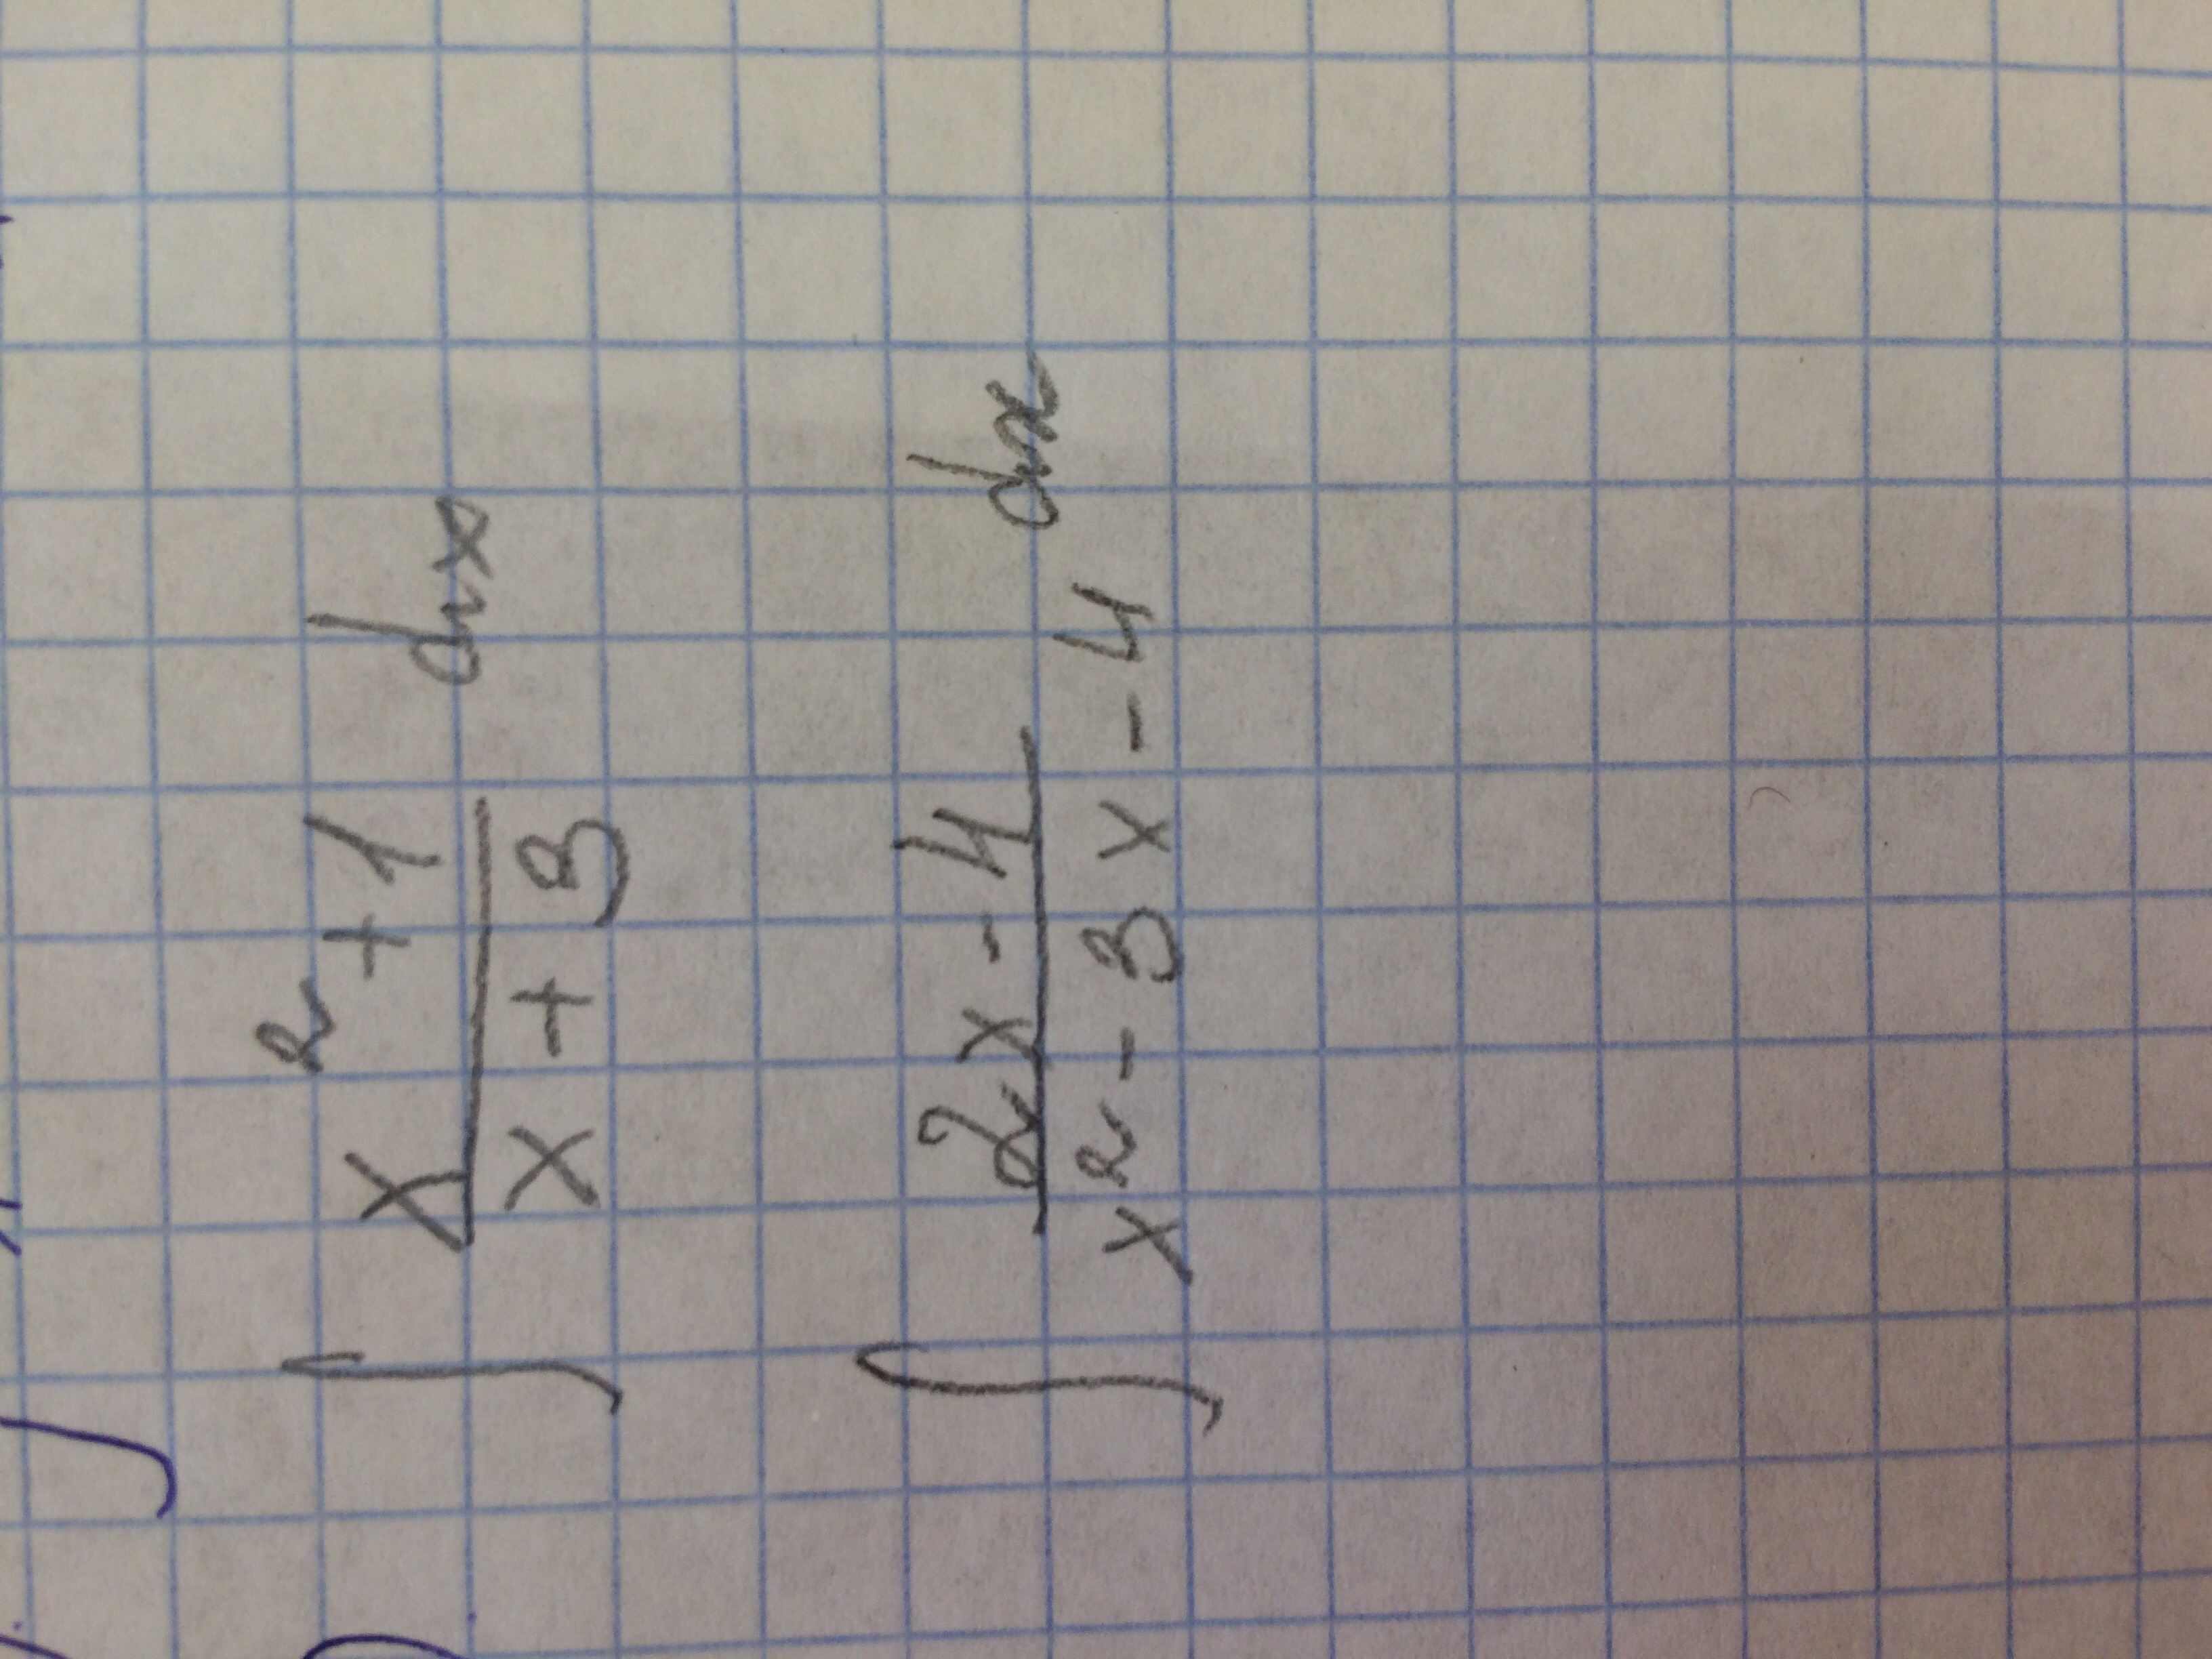 ∫ (x² + 1)/(x + 3) dx
∫ (2x - 4)/(x² - 3x - 4) dx